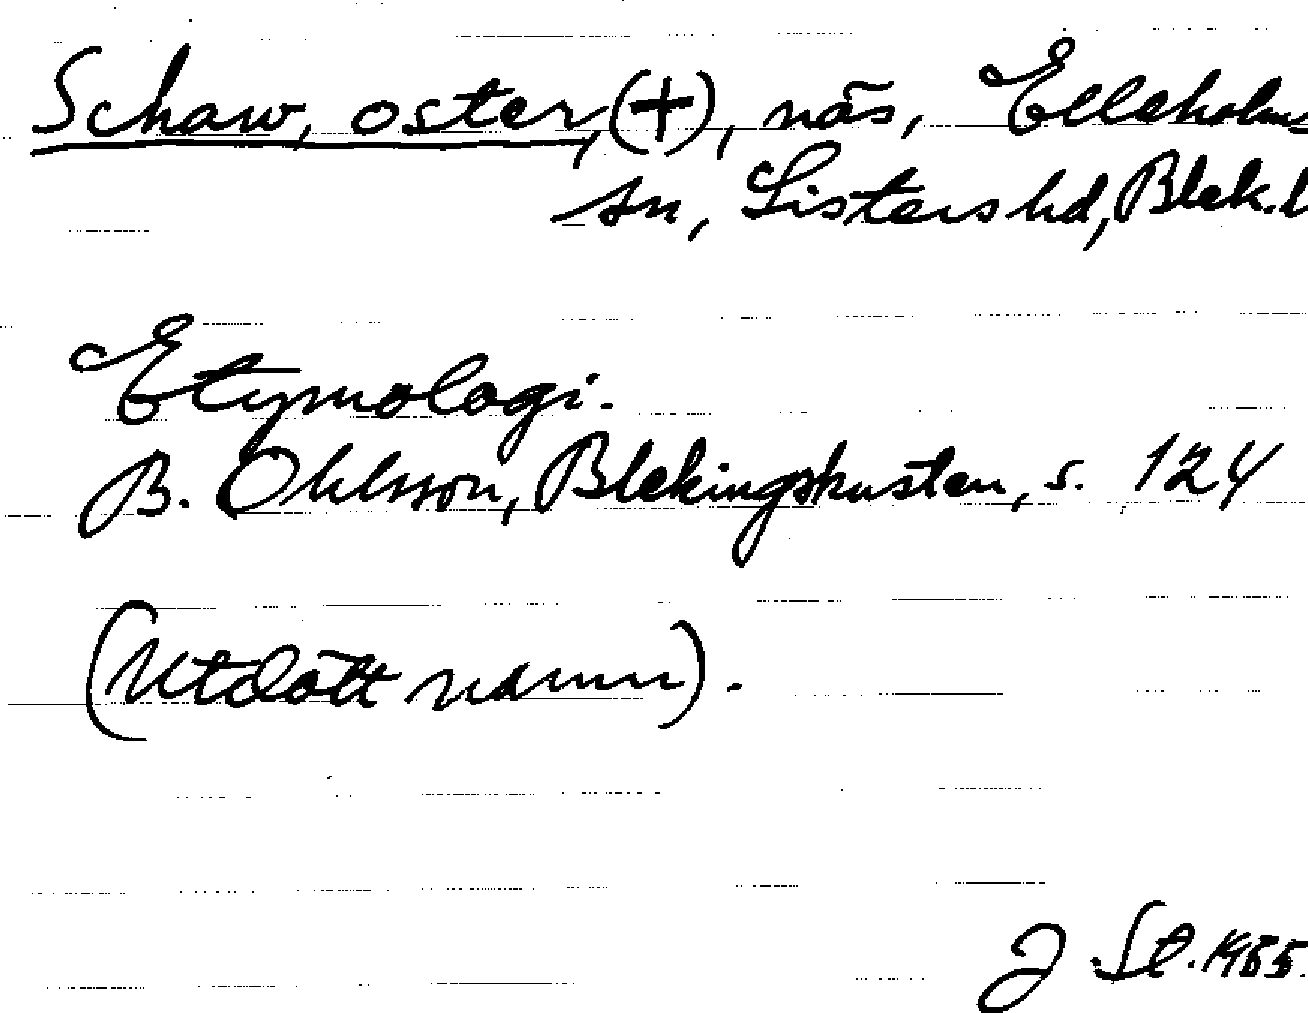 Schaw, oster, (+), näs, Elleholms
sn, Listers hd, Blek. l
Etymologi.
B. Ohlsson, Blekingskusten, s. 124
(Utdött namn).
J. St. 1965.